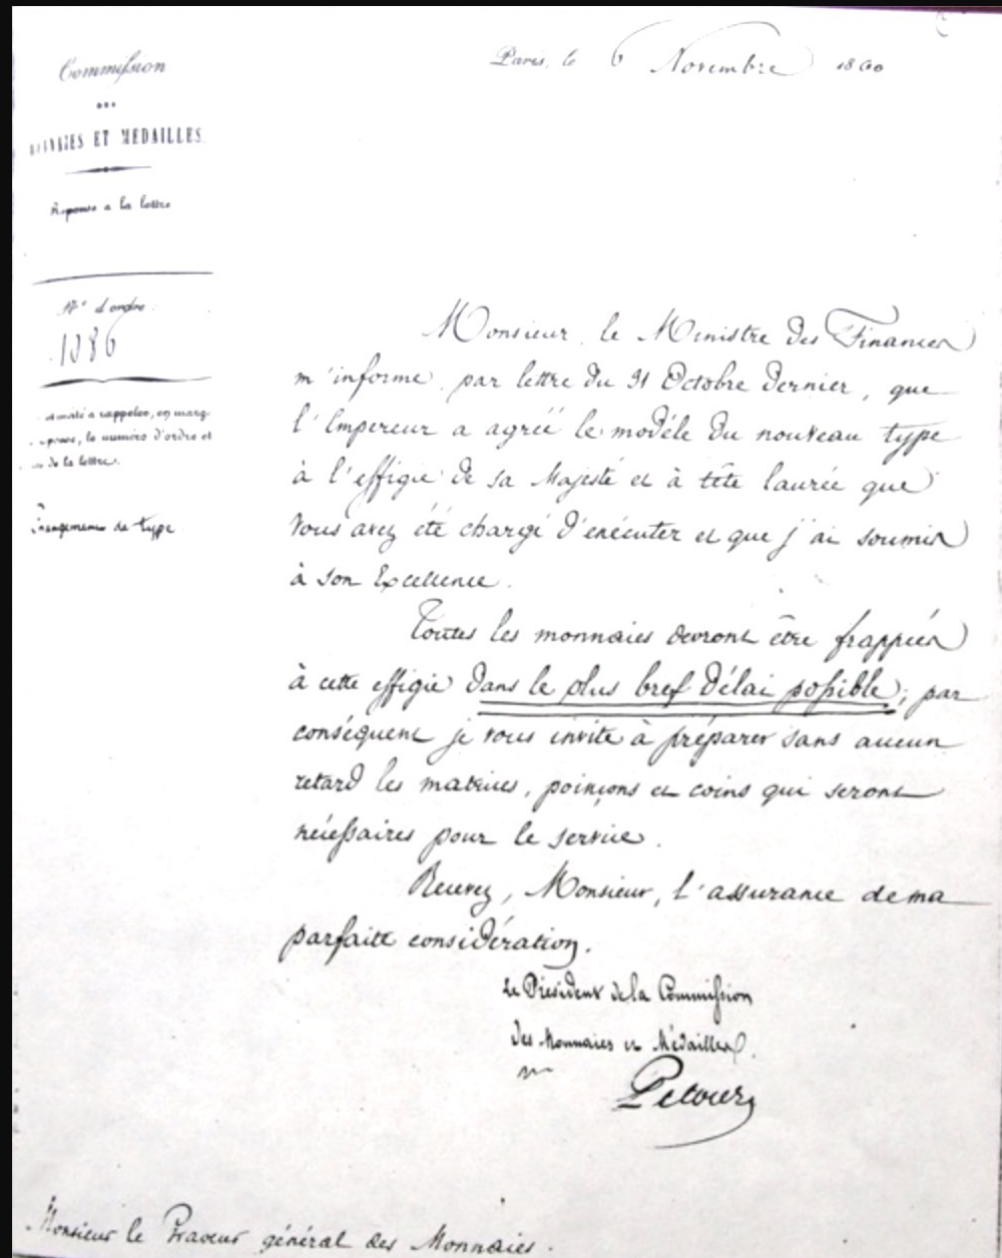 Paris, le 6 Novembre 1860
Commission
DES
MONNAIES ET MEDAILLES.
Réponse a la lettre
N° d'ordre :
1386
à rappeler, en marg
le numéro d'ordre et
de la lettre.
Changement de type
Monsieur le Ministre des Finances
m'informe, par lettre du 31 Octobre dernier, que
l'Empereur a agréé le modéle du nouveau type
à l'effigie de sa Majesté et à tête laurée que
vous avez été chargé d'exécuter et que j'ai soumis
à son Excellence.
Toutes les monnaies devront être frappées
à cette effigie dans le plus bref délai possible; par
conséquent je vous invite à préparer sans aucun
retard les matrices, poinçons et coins qui seront
nécessaires pour le service.
Recevez, Monsieur, l'assurance de ma
parfaite considération.
Le Président de la Commission
des Monnaies et Médailles.
Pelouze
Monsieur le Graveur général des Monnaies.